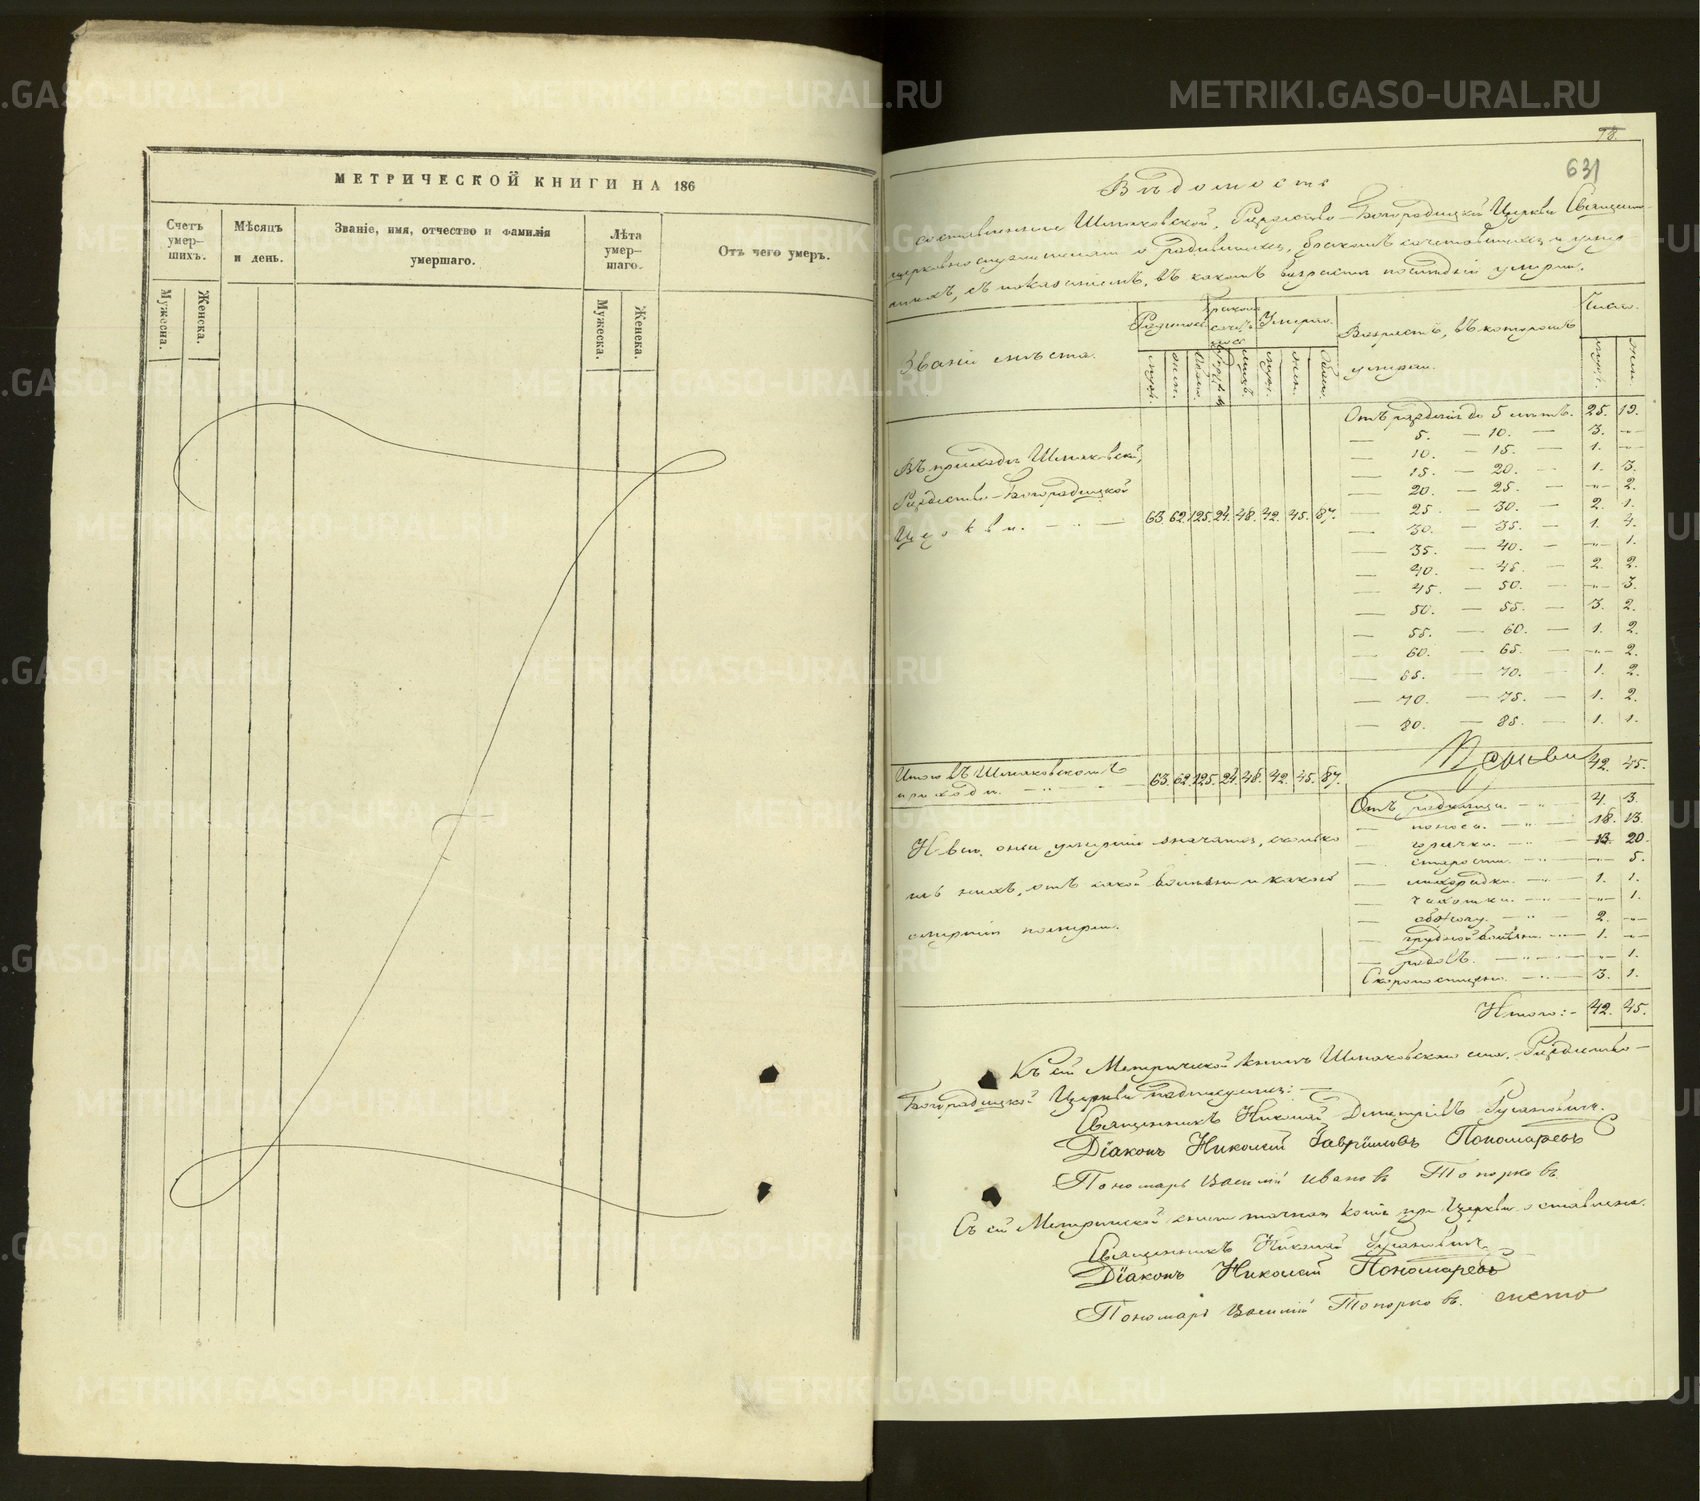 МЕТРИЧЕСКОЙ КНИГИ НА 186
Счетъ умер-шихъ.
Мужеска.
Женска.
Мѣсяцъ и день.
Званіе, имя, отчество и фамилія умершаго.
Лѣта умер-шаго.
Мужеска.
Женска.
Отъ чего умеръ.
78.
631
Вѣдомость
составленная Шмаковской, Рождество-Богородицкой Церкви Священно-
церковнослужителями о родившихся, бракомъ сочетавшихся и умер
шихъ, съ показаніемъ, въ какомъ возрастѣ послѣдніе умерли.
Званіе мѣста.
Родилось
муж. жен. Обоего
Умерло.
муж. жен. Обоего
Возрастъ, въ которомъ умерли.
Число.
муж. жен.
Въ приходѣ Шмаковской,
Рождество-Богородицкой
Церкви. 63. 62. 125. 24. 48. 42. 45. 87.
Отъ рожденія до 5 лѣтъ. 25. 13.
— 5. — 10. — 3. —
— 10. — 15. — 1. —
— 15. — 20. — 1. 3.
— 20. — 25. — — 2.
— 25. — 30. — 2. 1.
— 30. — 35. — 1. 4.
— 35. — 40. — — 1.
— 40. — 45. — 2. 2.
— 45. — 50. — — 3.
— 50. — 55. — 3. 2.
— 55. — 60. — 1. 2.
— 60. — 65. — — 2.
— 65. — 70. — 1. 2.
— 70. — 75. — 1. 2.
— 80. — 85. — 1. 1.
Итого въ Шмаковскомъ
приходѣ. 63. 62. 125. 24. 48. 42. 45. 87.
42. 45.
Отъ родимца. 4. 3.
— поноса. 18. 13.
— горячки. 13. 20.
— старости. — 5.
— лихорадки. 1. 1.
— чахотки. — 1.
— 2. —
— грудной болѣзни. 1. —
— родовъ. — 1.
Скоропостижно. 3. 1.
Итого:- 42. 45.
Къ сей Метрической книгѣ Шмаковскаго села, Рождество-
Богородицкой Церкви подписуемся:
Священникъ Николай Димитріевъ
Діаконъ Николай Гавріиловъ Пономаревъ
Пономарь Василій Ивановъ Топорковъ
Съ сей Метрической книги точная копія при Церкви оставлена.
Священникъ Николай
Діаконъ Николай Пономаревъ
Пономарь Василій Топорковъ.
METRIKI.GASO-URAL.RU